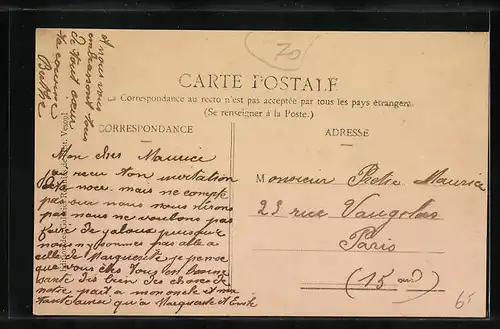 70
CARTE POSTALE
La Correspondance au recto n'est pas acceptée par tous les pays étrangers.
(Se renseigner à la Poste.)
CORRESPONDANCE
ADRESSE
Mon cher Maurice
recu ton invitation
noce. mais ne compte
pas sur nous nous n'irons
pas nous ne voulons pas
faire de jaloux puisque
nous n'y sommes pas allé a
celle de Marguerite je pense
que vous êtes tous en bonne
santé dis bien des choses de
notre part a mon oncle et ma
tante ainsi qu'a Marguerite et Emile
Monsieur Maurice
23 rue
Paris
(15
65
et nous vous
embrassont tous
de tout cœur
ta cousine
Vesoul